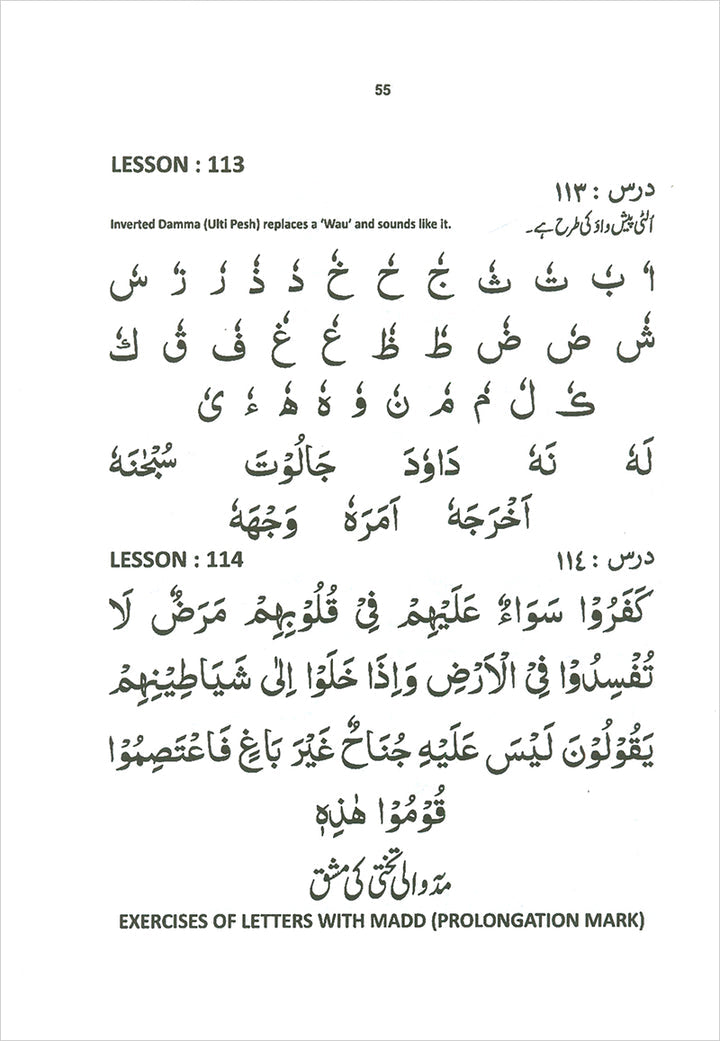 55
LESSON : 113
درس : ۱۱۳
Inverted Damma (Ulti Pesh) replaces a ‘Wau’ and sounds like it.
اُلٹی پیش واؤ کی طرح ہے۔
اٗ بٗ تٗ ثٗ جٗ حٗ خٗ دٗ ذٗ رٗ زٗ سٗ
شٗ صٗ ضٗ طٗ ظٗ عٗ غٗ فٗ قٗ كٗ
کٗ لٗ مٗ مٗ نٗ وٗ ہٗ ھٗ ءٗ یٗ
لَهٗ نَهٗ دَاوٗدَ جَالُوْتَ سُبْحٰنَهٗ
اَخْرَجَهٗ اَمَرَهٗ وَجْهَهٗ
LESSON : 114
درس : ١١٤
كَفَرُوْا سَوَاءٌ عَلَيْهِمْ فِيْ قُلُوْبِهِمْ مَرَضٌ لَا
تُفْسِدُوْا فِي الْاَرْضِ وَاِذَا خَلَوْا اِلٰى شَيَاطِيْنِهِمْ
يَقُوْلُوْنَ لَيْسَ عَلَيْهِ جُنَاحٌ غَيْرَ بَاغٍ فَاعْتَصِمُوْا
قُوْمُوْا هٰذِهٖ
مدّ والی تختی کی مشق
EXERCISES OF LETTERS WITH MADD (PROLONGATION MARK)